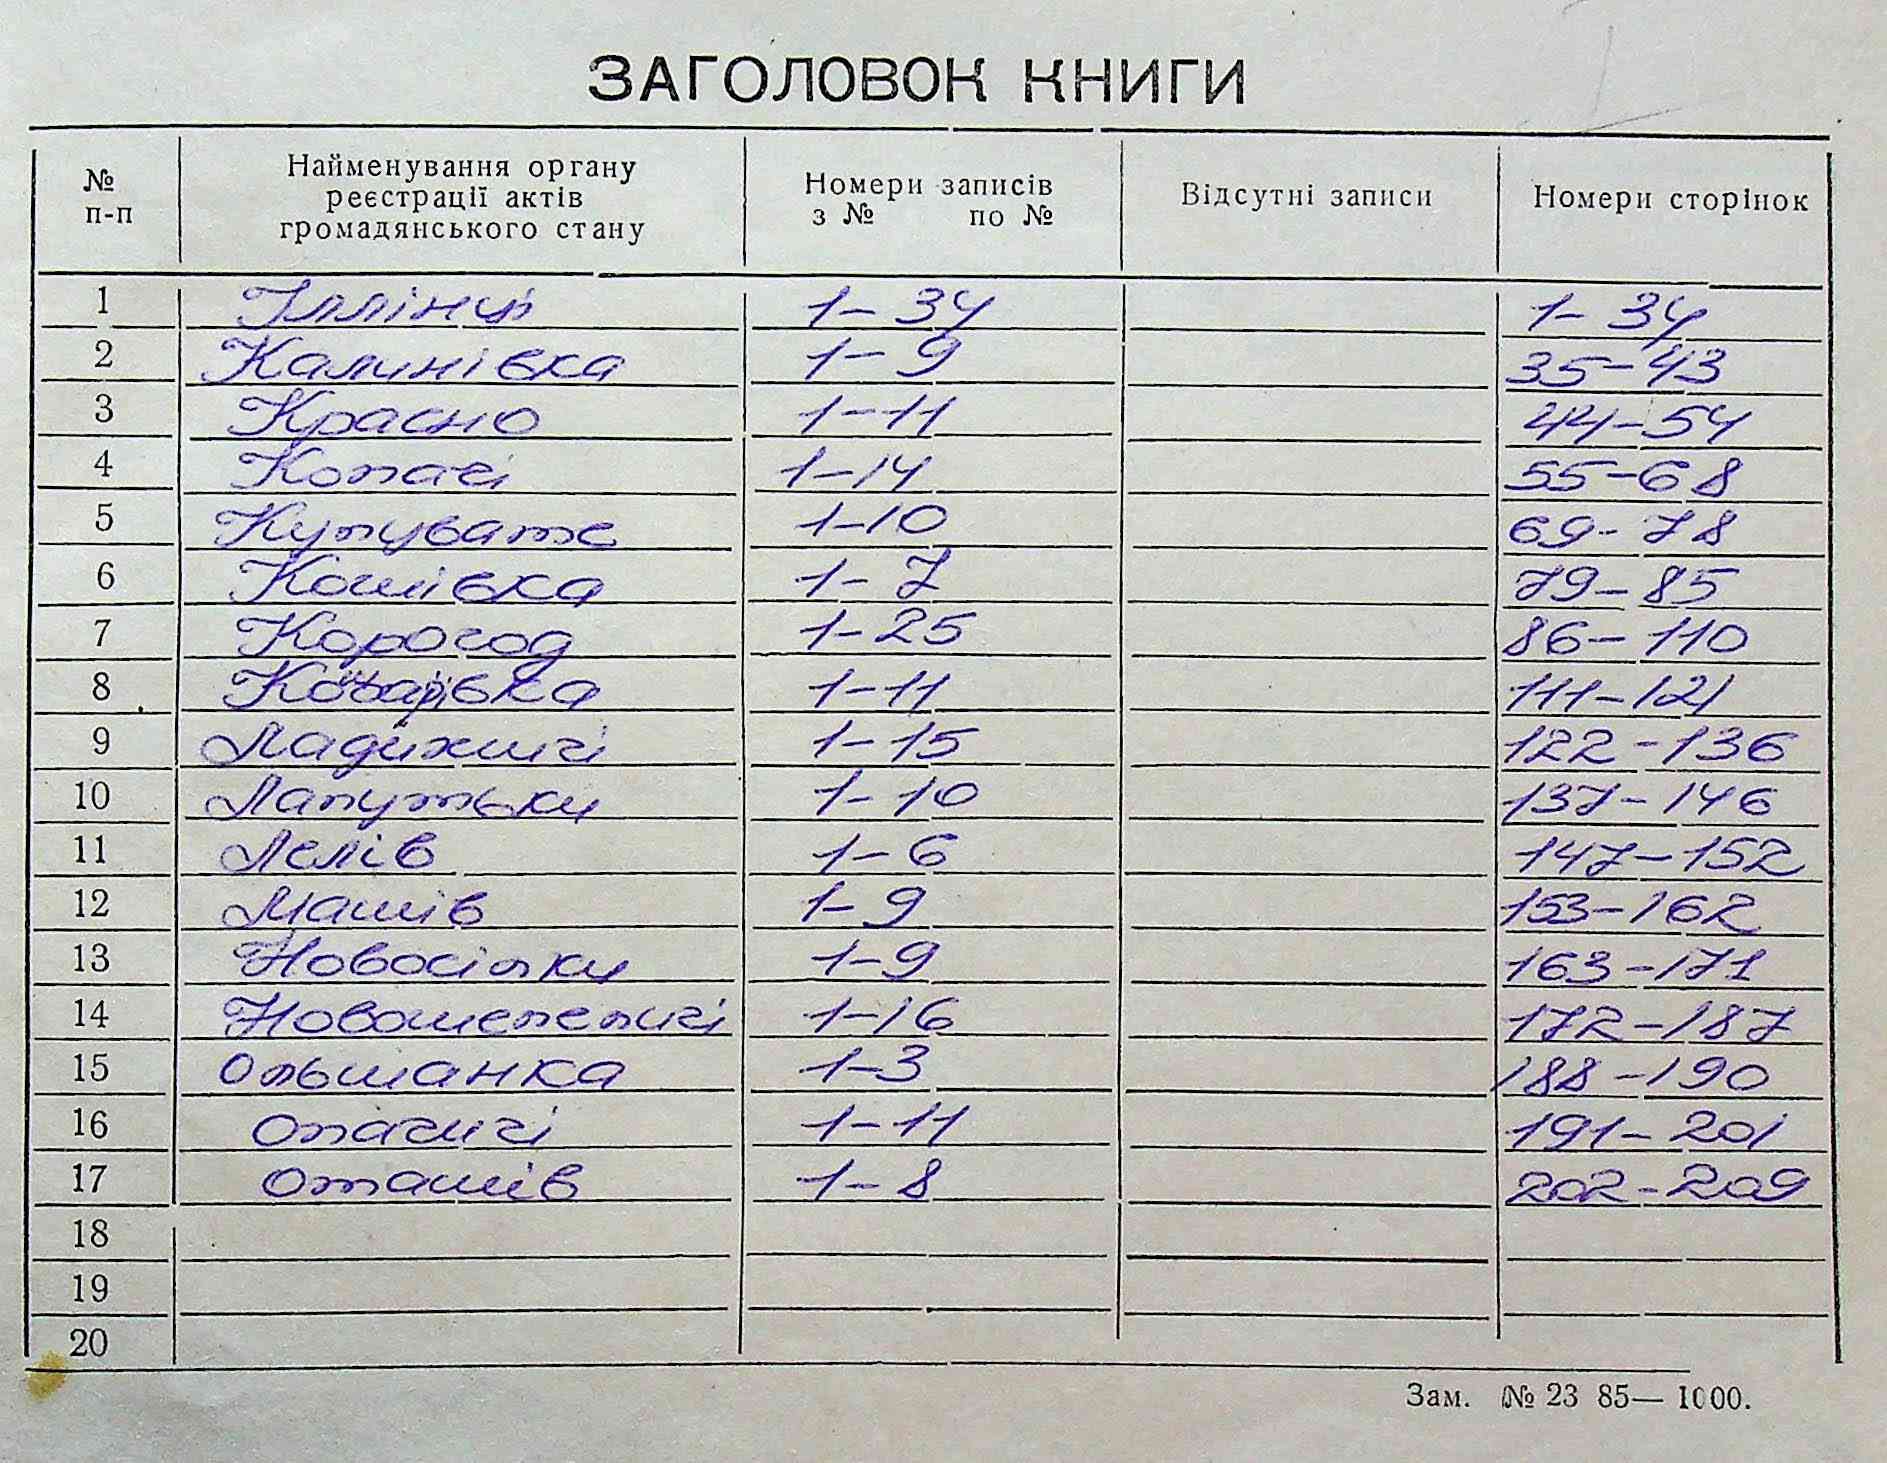 ЗАГОЛОВОК КНИГИ
№ п-п Найменування органу реєстрації актів громадянського стану Номери записів з № по № Відсутні записи Номери сторінок
1 Іллінці 1-34 1-34
2 Калинівка 1-9 35-43
3 Красно 1-11 44-54
4 Копачі 1-14 55-68
5 Купувате 1-10 69-78
6 Кошівка 1-7 79-85
7 Корогод 1-25 86-110
8 1-11 111-121
9 Ладижичі 1-15 122-136
10 Лапутьки 1-10 137-146
11 Лелів 1-6 147-152
12 Машів 1-9 153-162
13 Новосілки 1-9 163-171
14 Новошепеличі 1-16 172-187
15 Ольшанка 1-3 188-190
16 Опачичі 1-11 191-201
17 Оташів 1-8 202-209
18
19
20
Зам. № 23 85— 1000.